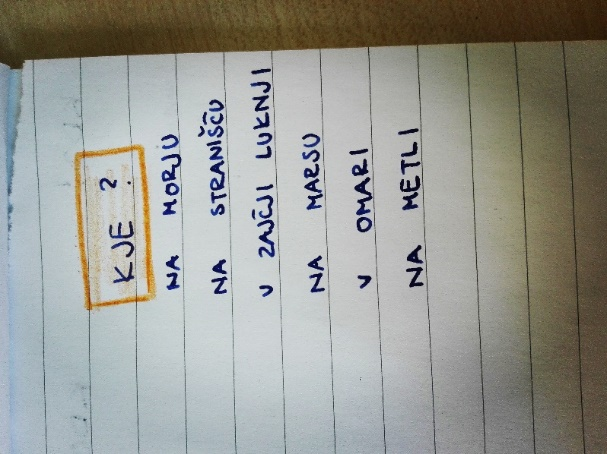 KJE ?
NA MORJU
NA STRANIŠČU
V ZAJČJI LUKNJI
NA MARSU
V OMARI
NA METLI